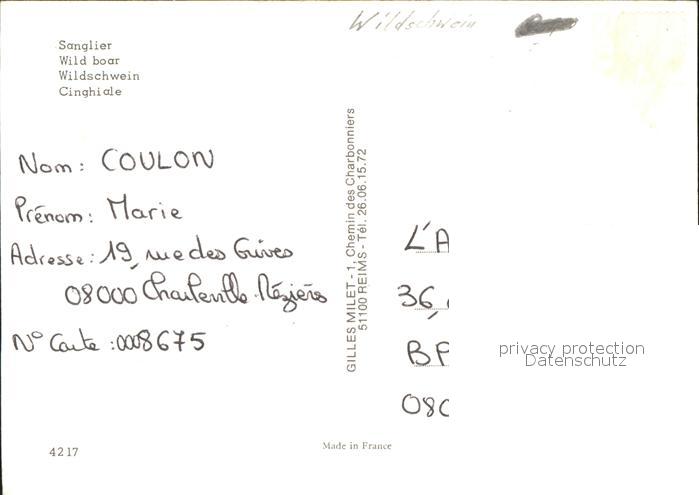 Wildschwein
Sanglier
Wild boar
Wildschwein
Cinghiale
Nom: COULON
Prénom: Marie
Adresse: 19, rue des Grives
08000 Charleville-Mézières
N° Carte: 0008675
GILLES MILET - 1, Chemin des Charbonniers
51100 REIMS - Tél. 26.06.15.72
L'A
36,
BP
080
privacy protection
Datenschutz
4217
Made in France